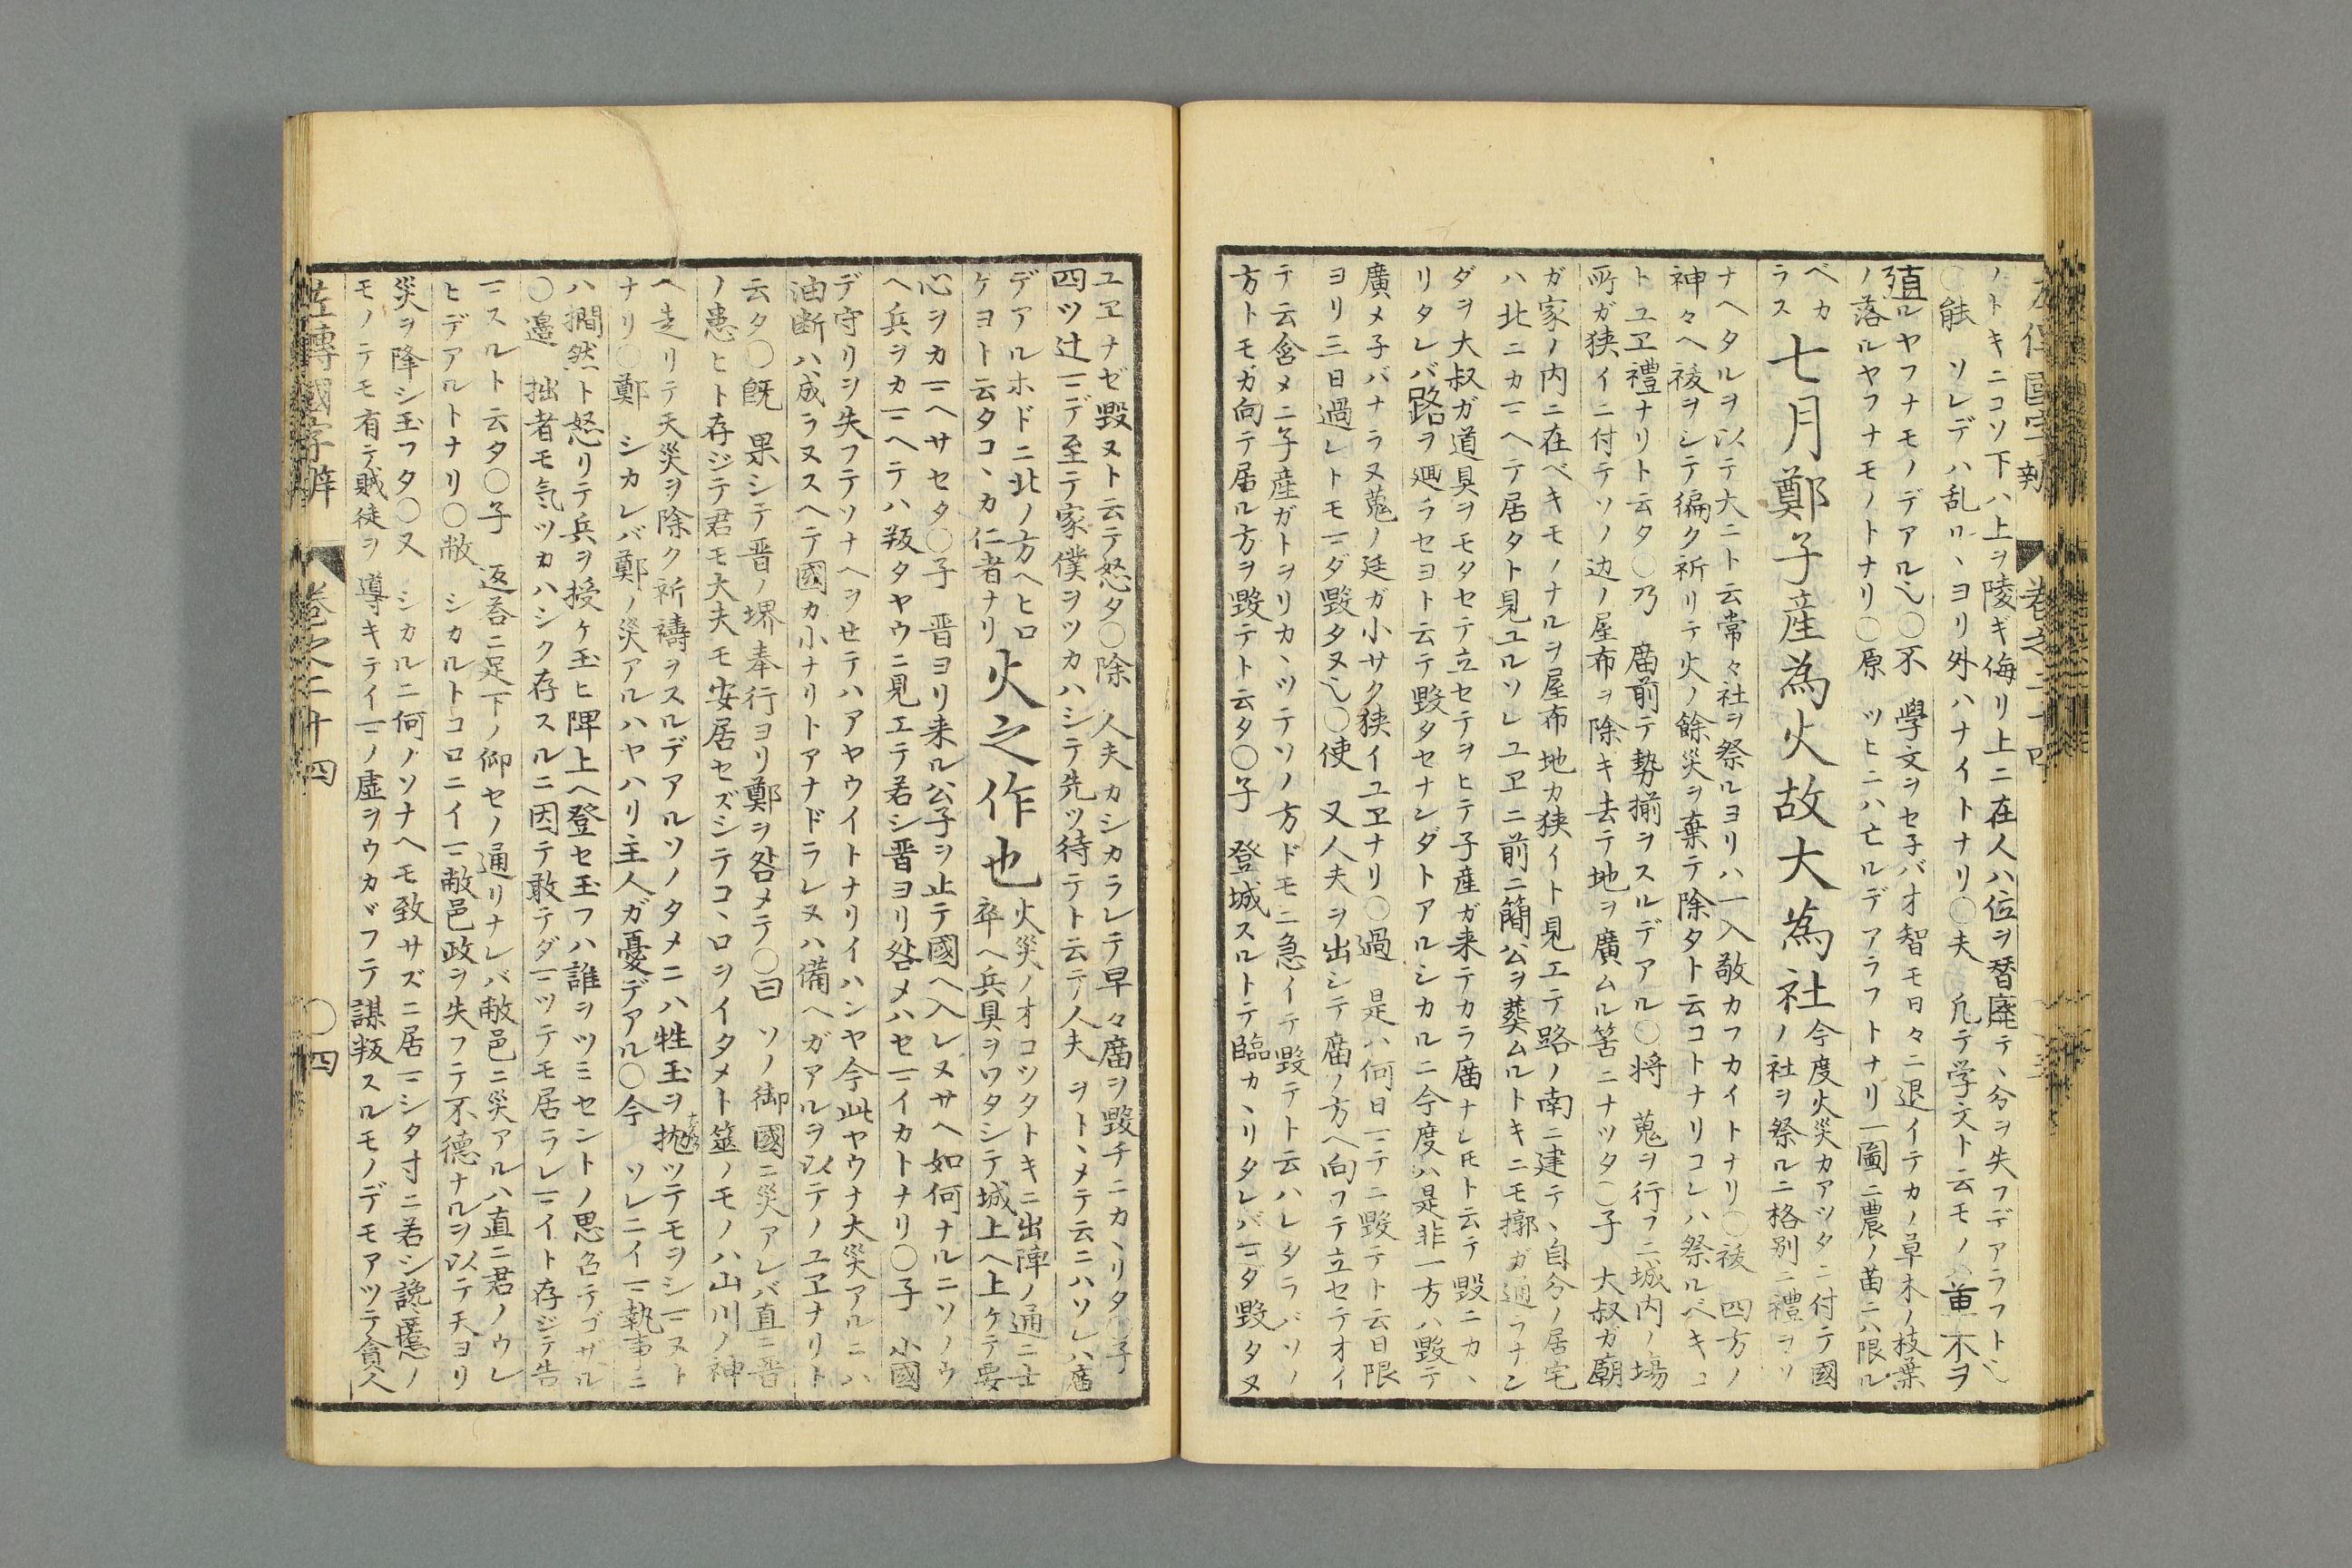 ノトキニコソ下ハ上ヲ陵ギ侮リ上ニ在人ハ位ヲ替廃テヽ分ヲ失フデアラフト
〇能　ソレデハ乱ルヽヨリ外ハナイトナリ〇夫　凡テ学文ト云モノハ草木ヲ
殖ルヤフナモノデアル〇不　學文ヲセ子バオ智モ日々ニ退イテカノ草木ノ枝葉
ノ落ルヤフナモノトナリ〇原　ツヒニハ亡ルデアラフトナリ一圖ニ農ノ苗ニハ限ル
ベカ
ラス
七月鄭子産為火故大為社
今度火災カアツタニ付テ國
ノ社ヲ祭ルニ格別ニ禮ヲソ
ナヘタルヲ以テ大ニト云常々社ヲ祭ルヨリハ一入敬カフカイトナリ〇祓　四方ノ
神々ヘ祓ヲシテ編ク祈リテ火ノ餘災ヲ棄テ除タト云コトナリコレハ祭ルベキコ
トユヱ禮ナリト云タ〇乃　廟前テ勢揃ヲスルデアル〇将　蒐ヲ行フニ城内ノ場
所ガ狭イニ付テソノ辺ノ屋布ヲ除キ去テ地ヲ廣ムル筈ニナツタ〇子　大叔ガ廟
ガ家ノ内ニ在ベキモノナルヲ屋布地カ狭イト見エテ路ノ南ニ建テヽ自分ノ居宅
ハ北ニカマヘテ居タト見ユルソレユヱニ前ニ簡公ヲ葬ムルトキニモ廓ガ通フナン
ダヲ大叔ガ道具ヲモタセテ立セテヲヒテ子産ガ来テカラ廟ナレトト云テ毀ニカヽ
リタレバ路ヲ廻ラセヨト云テ毀タセナンダトアルシカルニ今度ハ是非一方ハ毀テ
廣メ子バナラヌ蒐ノ廷ガ小サク狭イユヱナリ〇過　是ハ何日マテニ毀テト云日限
ヨリ三日過レトモマダ毀タヌ〇使　又人夫ヲ出シテ廟ノ方ヘ向フテ立セテオイ
テ云含メニ子産ガトヲリカヽツテソノ方ドモニ急イテ毀テト云ハレタラバソノ
方トモガ向テ居ル方ヲ毀テト云タ〇子　登城スルトテ臨カヽリタレバマダ毀タヌ
ユヱナゼ毀ヌト云テ怒タ〇除　人夫カシカラレテ早々廟ヲ毀チニカヽリタ〇子
四ツ辻マデ至テ家僕ヲツカハシテ先ツ待テト云テ人夫ヲトヽメテ云ニハソレハ廟
デアルホドニ北ノ方ヘヒロ
ケヨト云タコヽカ仁者ナリ
火之作也
火災ノオコツタトキニ出陣ノ通ニ士
卒ヘ兵具ヲワタシテ城上ヘ上ケテ要
心ヲカマヘサセタ〇子　晋ヨリ来ル公子ヲ止テ國ヘ入レヌサヘ如何ナルニソノウ
ヘ兵ヲカマヘテハ叛タヤウニ見エテ若シ晋ヨリ咎メハセマイカトナリ〇子　小國
デ守リヲ失フテソナヘヲセテハアヤウイトナリイハンヤ今此ヤウナ大災アルニハ
油断ハ成ラヌスヘテ國カ小ナリトアナドラレヌハ備ヘガアルヲ以テノユヱナリト
云タ〇既　果シテ晋ノ堺奉行ヨリ鄭ヲ咎メテ〇曰　ソノ御國ニ災アレバ直ニ晋
ノ患ヒト存ジテ君モ大夫モ安居セズシテコヽロヲイタメト筮ノモノハ山川ノ神
ヘ走リテ天災ヲ除ク祈禱ヲスルデアルソノタメニハ牲玉ヲ抛ツテモヲシマヌト
ナリ〇鄭　シカレバ鄭ノ災アルハヤハリ主人ガ憂デアル〇今　ソレニイマ執事ニ
ハ撊然ト怒リテ兵ヲ授ケ玉ヒ陴上ヘ登セ玉フハ誰ヲツミセントノ思召テゴザル
〇邉　拙者モ気ツカハシク存スルニ因テ敢テダマツテモ居ラレマイト存ジテ告
マスルト云タ〇子　返荅ニ足下ノ仰セノ通リナレバ敝邑ニ災アルハ直ニ君ノウレ
ヒデアルトナリ〇敝　シカルトコロニイマ敝邑政ヲ失フテ不德ナルヲ以テ天ヨリ
災ヲ降シ玉フタ〇又　シカルニ何ノソナヘモ致サズニ居マシタ寸ニ若シ讒慝ノ
モノテモ有テ賊徒ヲ導キテイマノ虚ヲウカヾフテ謀叛スルモノデモアツテ貪人
左傳國字解　卷之二十四　〇四